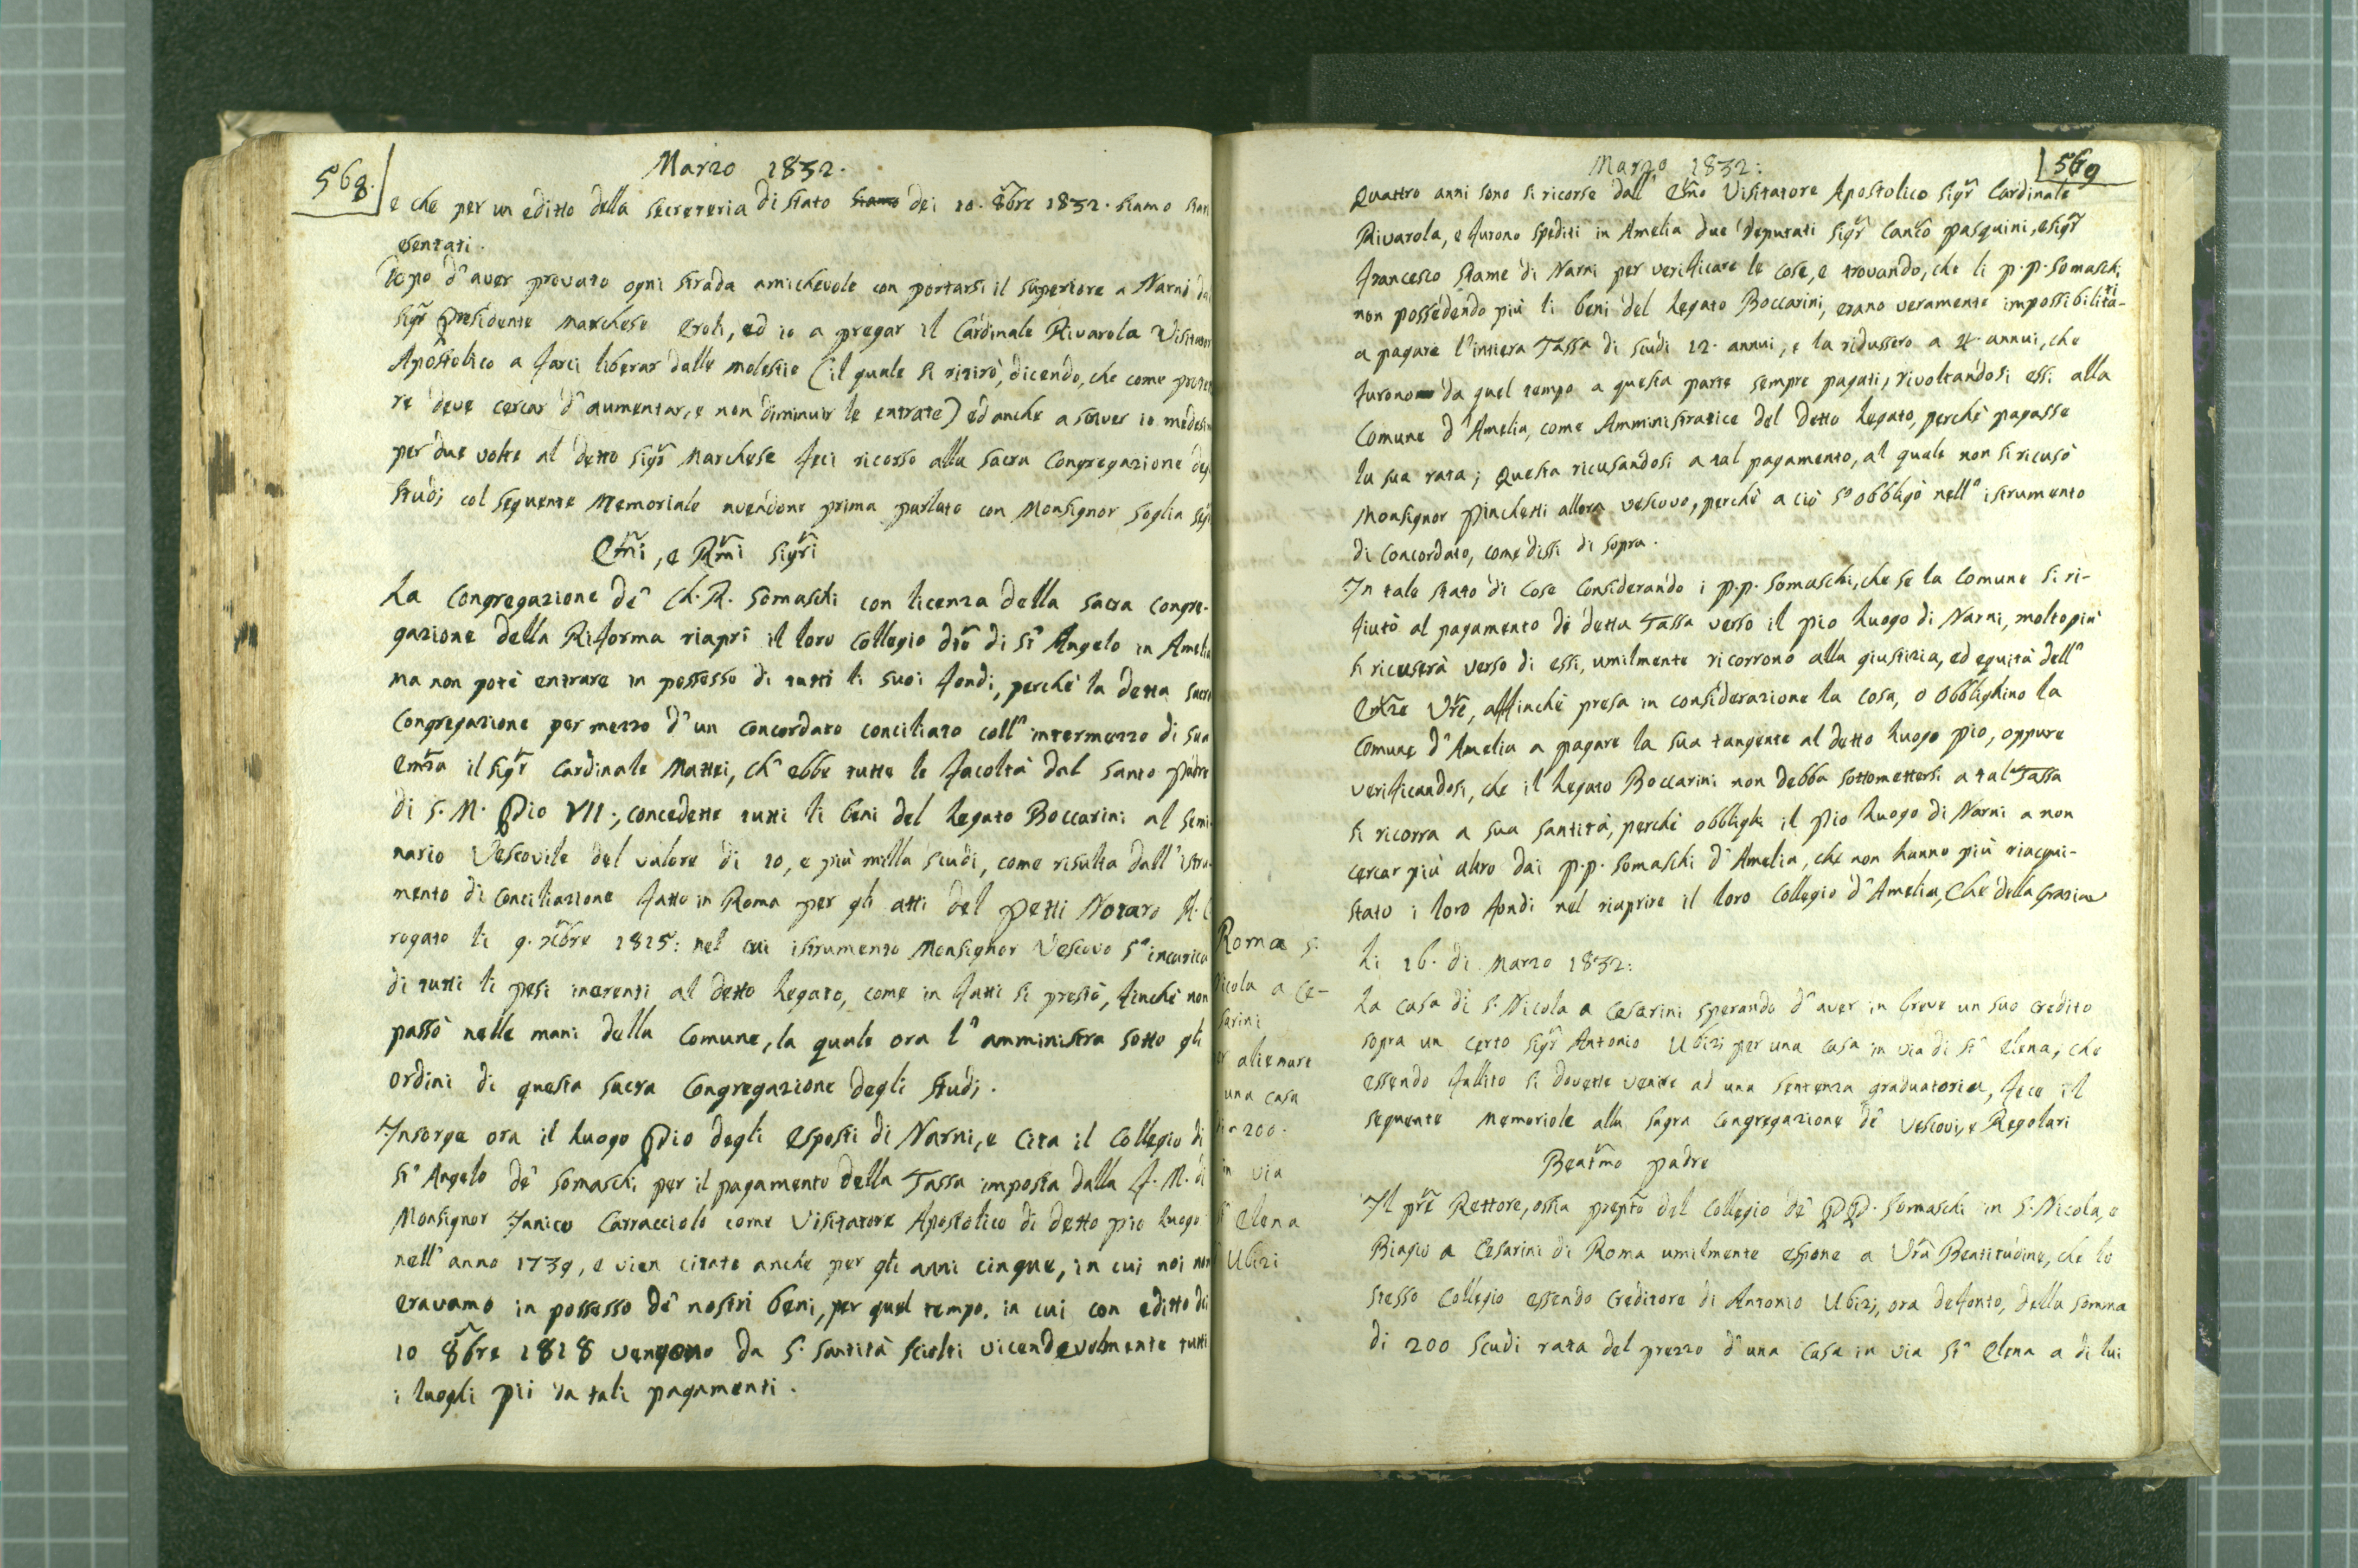 568.
Marzo 1832.
e che per un editto della Secreteria di Stato Siamo dei 10. 8bre 1832. siamo stati
esentati.
Dopo d'aver provato ogni strada amichevole con portarsi il Superiore a Narni dal
Sigr Presidente Marchese Eroli, ed io a pregar il Cardinale Rivarola Visitatore
Apostolico a farci liberar dalle molestie (il quale si ritirò, dicendo, che come
re deve cercar d'aumentar, e non diminuir le entrate) ed anche a scriver io medesimo
per due volte al detto Sigr Marchese feci ricorso alla Sacra Congregazione degli
Studj col seguente Memoriale avendone prima parlato con Monsignor Soglia
Emi, e Rmi Sigri
La Congregazione de' Ch. R. Somaschi con licenza della Sacra Congre-
gazione della Riforma riaprì il loro Collegio dto di St' Angelo in Amelia
ma non potè entrare in possesso di tutti li suoi fondi, perchè la detta Sacra
Congregazione per mezzo d'un concordato conciliato coll' intermezzo di sua
Emza il Sigr Cardinale Mattei, ch' ebbe tutte le facoltà dal Santo Padre
di S. M. Pio VII., concedette tutti li beni del Legato Boccarini al Semi-
nario Vescovile del valore di 10, e più milla scudi, come risulta dall' istru-
mento di Conciliazione fatto in Roma per gli atti del Petti Notaro A. C
rogato li 9. Xbre 1815: nel cui istrumento Monsignor Vescovo s' incarica
di tutti li pesi inerenti al detto Legato, come in fatti si prestò, finchè non
passò nelle mani della Comune, la quale ora l' amministra sotto gli
ordini di questa Sacra Congregazione degli Studj.
Insorge ora il Luogo Pio degli Esposti di Narni, e cita il Collegio di
St' Angelo de' Somaschi per il pagamento della Tassa imposta dalla f. M. di
Monsignor Janico Carracciolo come Visitatore Apostolico di detto pio Luogo
nell' anno 1739, e vien citato anche per gli anni cinque, in cui noi non
eravamo in possesso de' nostri beni, per quel tempo, in cui con editto dei
10 8bre 1818 vengono da S. Santità sciolti vicendevolmente tutti
i luoghi pii da tali pagamenti.
569
Marzo 1832:
Quattro anni sono si ricorse dall' Emo Visitatore Apostolico Sigr Cardinale
Rivarola, e furono spediti in Amelia due Deputati Sigr Canco Pasquini, e Sigr
Francesco Stame di Narni per verificare le cose, e trovando, che li P.P. Somaschi
non possedendo più li beni del Legato Boccarini, erano veramente impossibilitati
a pagare l'intiera Tassa di scudi 12. annui, e la ridussero a 4. annui, che
furono da quel tempo a questa parte sempre pagati, rivoltandosi essi alla
Comune d'Amelia, come Amministratice del detto Legato, perchè pagasse
la sua rata; Questa ricusandosi a tal pagamento, al quale non si ricusò
Monsignor Pinchetti allora Vescovo, perchè a ciò s' obbligò nell' istrumento
di Concordato, come dissi di sopra.
In tale stato di cose considerando i P.P. Somaschi, che se la Comune si ri-
fiutò al pagamento di detta Tassa verso il pio Luogo di Narni, molto più
si ricuserà verso di essi, umilmente ricorrono alla giustizia, ed equità dell'
Emze Vre, affinchè presa in considerazione la cosa, o obblighino la
Comune d'Amelia a pagare la sua tangente al detto Luogo Pio, oppure
verificandosi, che il Legato Boccarini non debba sottomettersi a tal Tassa
si ricorra a sua Santità, perchè obblighi il Pio Luogo di Narni a non
cercar più altro dai P.P. Somaschi d'Amelia, che non hanno più riacqui-
stato i loro fondi nel riaprire il loro Collegio d'Amelia, Che della Grazia
Roma S.
Nicola a Ce-
sarini
per alienare
una casa
di 200.
in via
St' Elena
Ubizi
Li 16. di Marzo 1832:
La casa di S. Nicola a Cesarini sperando d'aver in breve un suo credito
sopra un certo Sigr Antonio Ubizi per una casa in via di St' Elena, che
essendo fallito si dovette venire ad una sentenza graduatoria, fece il
seguente Memoriale alla Sagra Congregazione de' Vescovi, e Regolari
Beatmo Padre
Il Pre Rettore, ossia Prepto del Collegio de' PP. Somaschi in S. Nicola, e
Biagio a Cesarini di Roma umilmente espone a Vra Beatitudine, che lo
stesso Collegio essendo creditore di Antonio Ubizi, ora defonto, della somma
di 200 scudi rata del prezzo d'una casa in via St' Elena a di lui